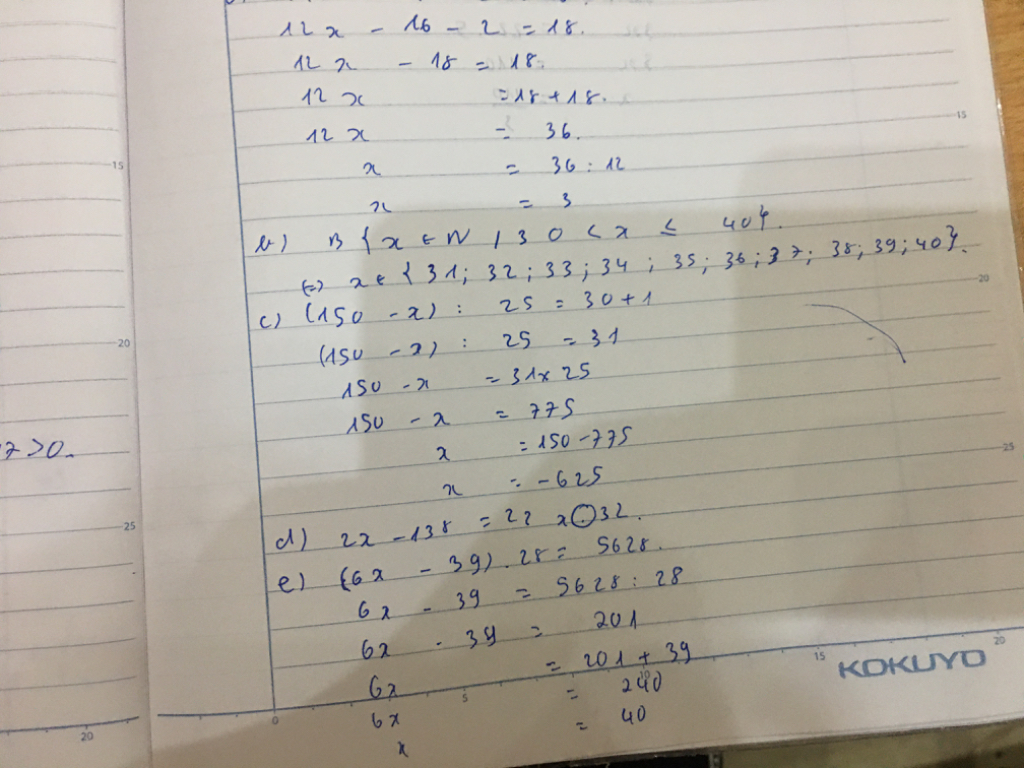 12x - 16 - 2 = 18.
12x - 18 = 18.
12x = 18 + 18.
12x = 36.
x = 36 : 12
x = 3
b) B {x ∈ N / 30 < x ≤ 40}.
(=) x ∈ {31; 32; 33; 34; 35; 36; 37; 38; 39; 40}.
c) (150 - x) : 25 = 30 + 1
(150 - x) : 25 = 31
150 - x = 31 x 25
150 - x = 775
x = 150 - 775
x = -625
d) 2x - 138 = 22 x 32.
e) (6x - 39) . 28 = 5628.
6x - 39 = 5628 : 28
6x - 39 = 201
6x = 201 + 39
6x = 240
x = 40
7 > 0.
15
20
25
20
15
20
25
0
5
10
15
20
KOKUYO